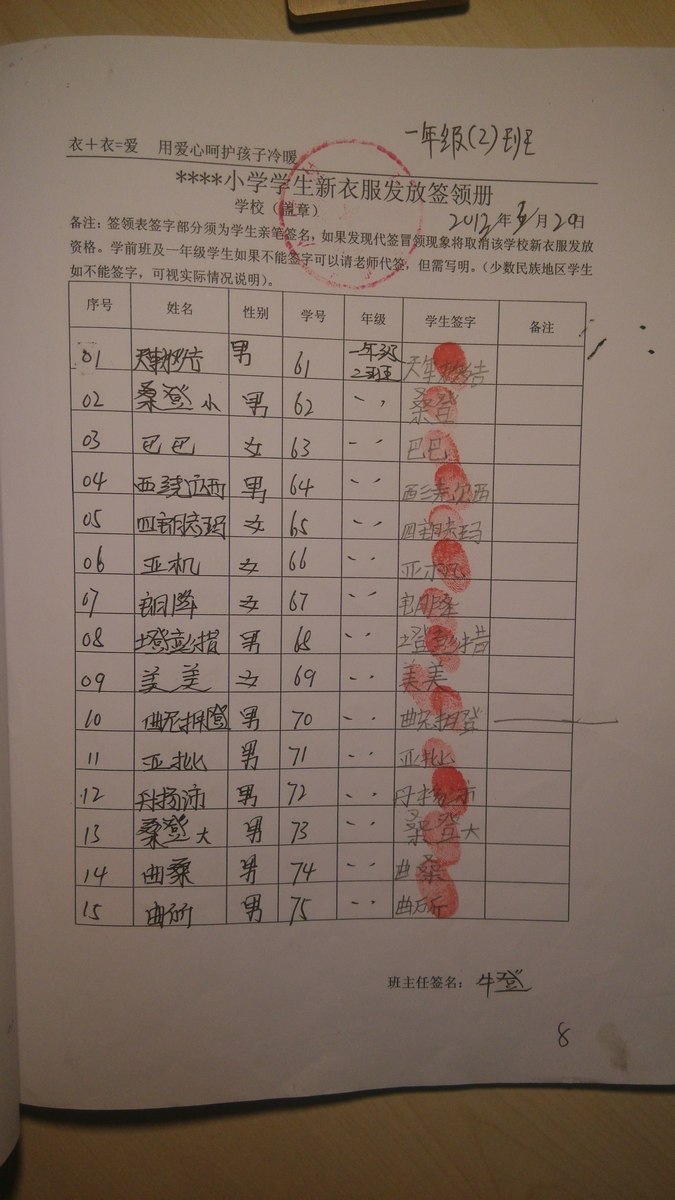 一年级(2)班
衣＋衣=爱 用爱心呵护孩子冷暖
****小学学生新衣服发放签领册
学校（盖章） 2012年 月20日
备注：签领表签字部分须为学生亲笔签名，如果发现代签冒领现象将取消该学校新衣服发放
资格。学前班及一年级学生如果不能签字可以请老师代签，但需写明。（少数民族地区学生
如不能签字，可视实际情况说明）。
序号 姓名 性别 学号 年级 学生签字 备注
01 男 61 一年级2班
02 桑登小 男 62 桑登
03 巴巴 女 63 巴巴
04 男 64
05 女 65
06 亚机 女 66 亚机
07 女 67
08 男 68
09 美美 女 69 美美
10 男 70
11 亚批 男 71 亚批
12 丹扬沛 男 72 丹扬沛
13 桑登大 男 73 桑登大
14 曲桑 男 74 曲桑
15 曲所 男 75 曲所
班主任签名：牛登
8